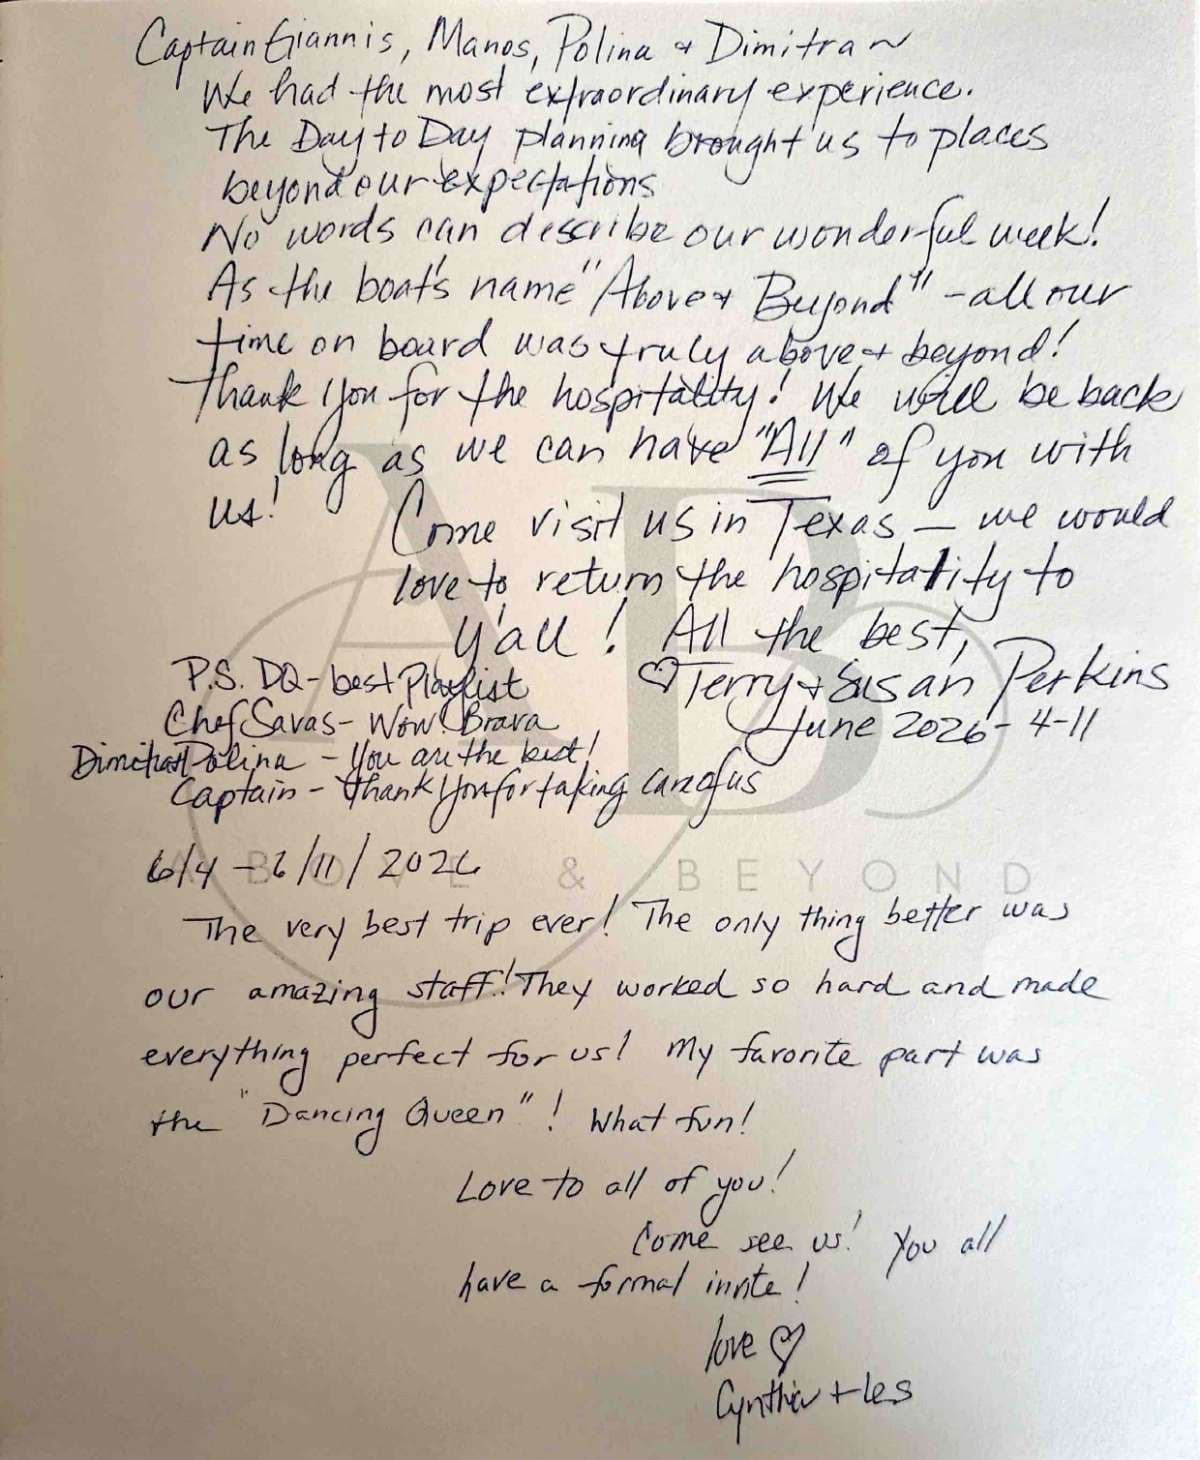 Captain Giannis, Manos, Polina & Dimitra ~
We had the most extraordinary experience.
The Day to Day planning brought us to places
beyond our expectations
No words can describe our wonderful week!
As the boat's name "Above & Beyond" - all our
time on board was truly above & beyond!
Thank you for the hospitality! We will be back
as long as we can have "All" of you with
us!
Come visit us in Texas - we would
love to return the hospitality to
y'all! All the best,
♡ Terry & Susan Perkins
June 2026 - 4-11
P.S. DQ - best Playlist
Chef Savas - Wow! Brava
Dimitra & Polina - You are the best!
Captain - Thank you for taking care of us
6/4 - 6/11/2026
AB
ABOVE & BEYOND
The very best trip ever! The only thing better was
our amazing staff! They worked so hard and made
everything perfect for us! My favorite part was
the "Dancing Queen"! What fun!
Love to all of you!
Come see us! You all
have a formal invite!
love ♡
Cynthia + Les